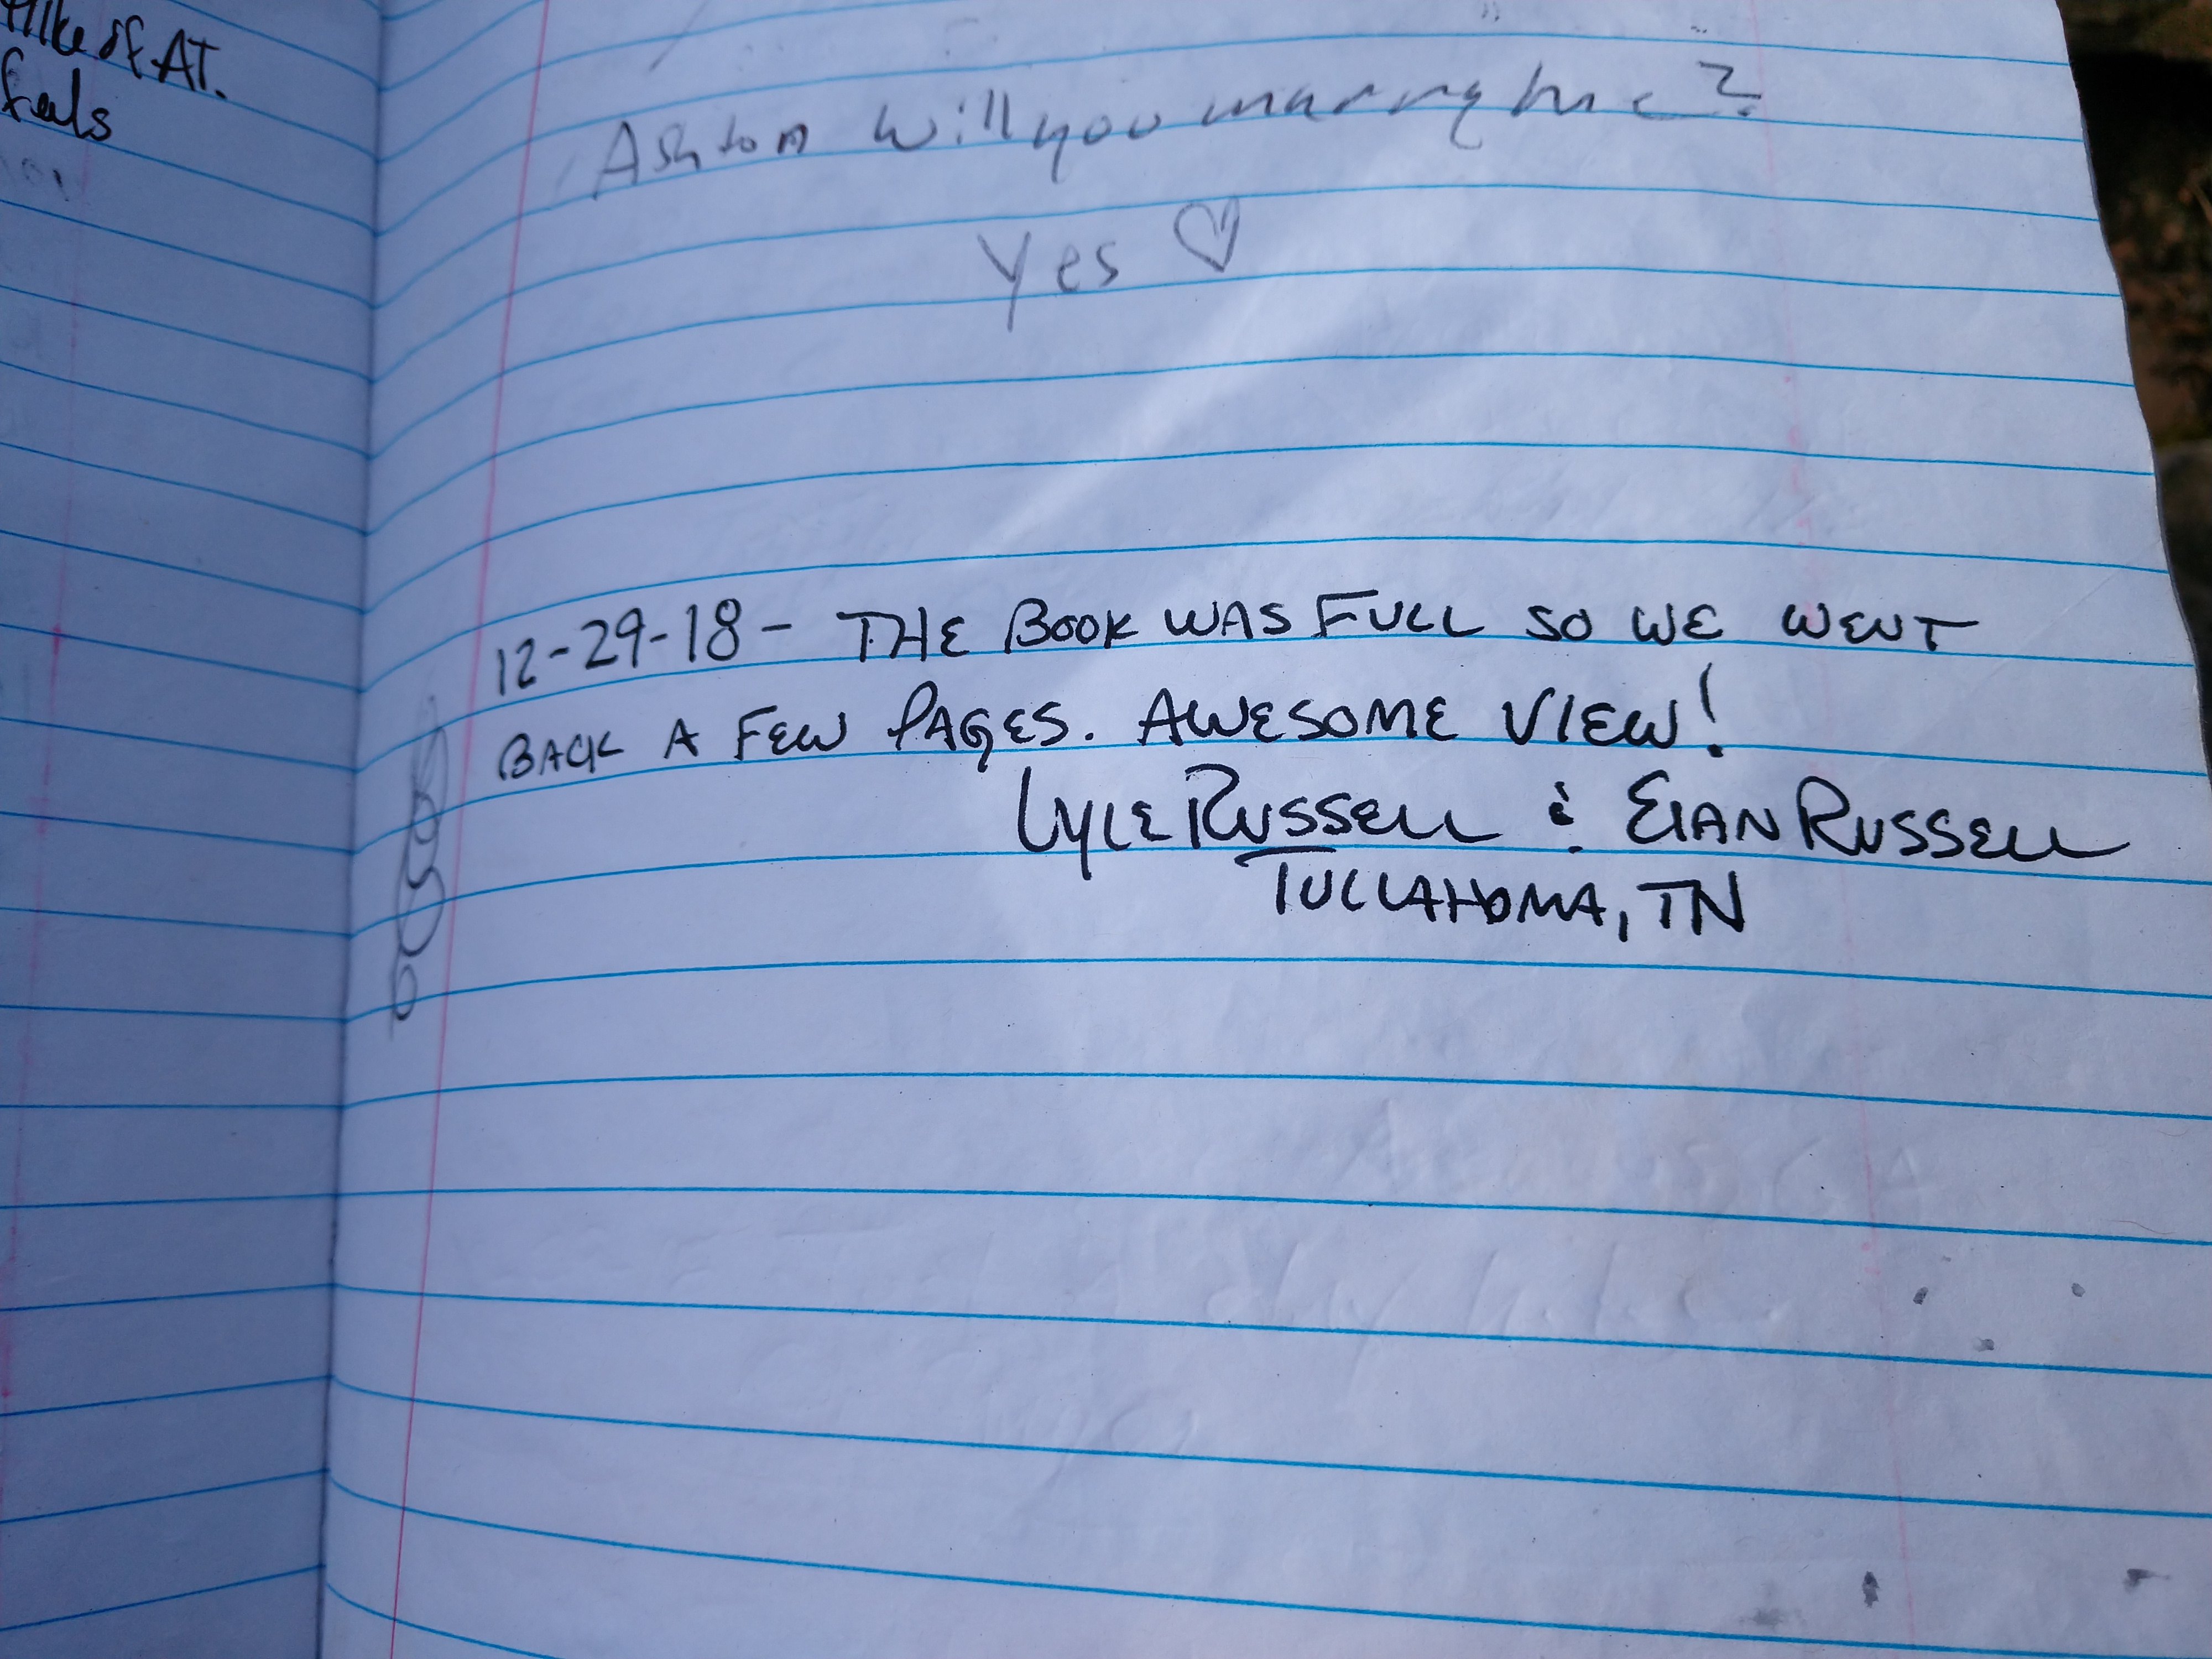 Hike of AT.
feels
Ashton will you marry me?
Yes ♡
12-29-18 - THE BOOK WAS FULL SO WE WENT
BACK A FEW PAGES. AWESOME VIEW!
LYLE RUSSELL & EIAN RUSSELL
TULLAHOMA, TN